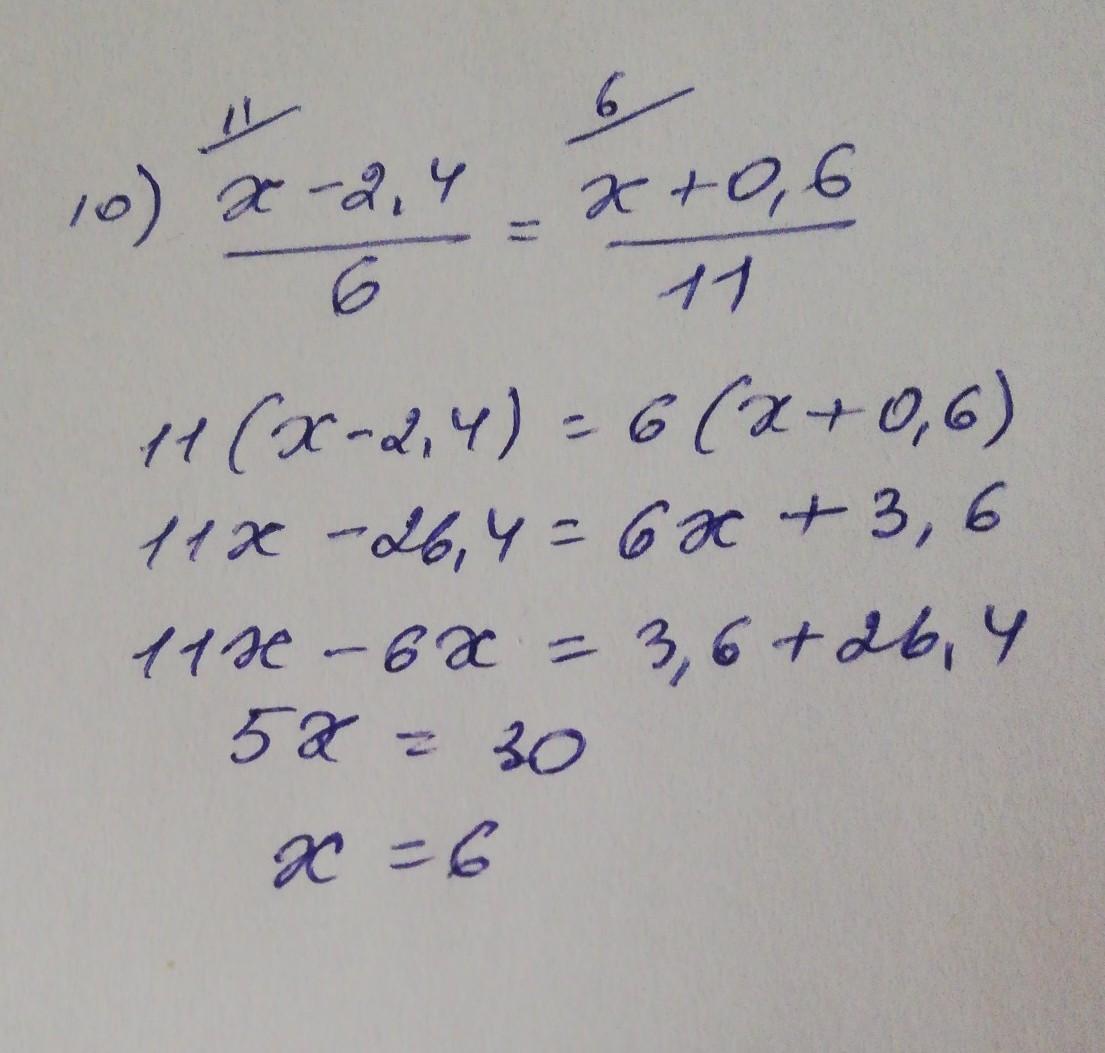 11/ 6/
10) x-2,4 = x+0,6
6 11
11(x-2,4) = 6(x+0,6)
11x -26,4 = 6x + 3,6
11x - 6x = 3,6+26,4
5x = 30
x = 6